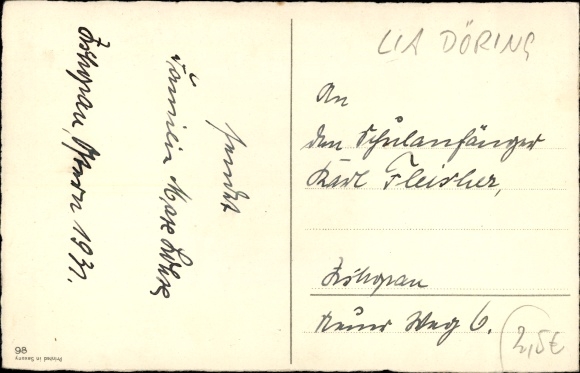 Zschopau, Ostern 1931.
Familie Max
sendet
LIA DÖRING
An
den Schulanfänger
Karl Fleischer,
Zschopau
Neuer Weg 6.
2,5€
98
Printed in Saxony